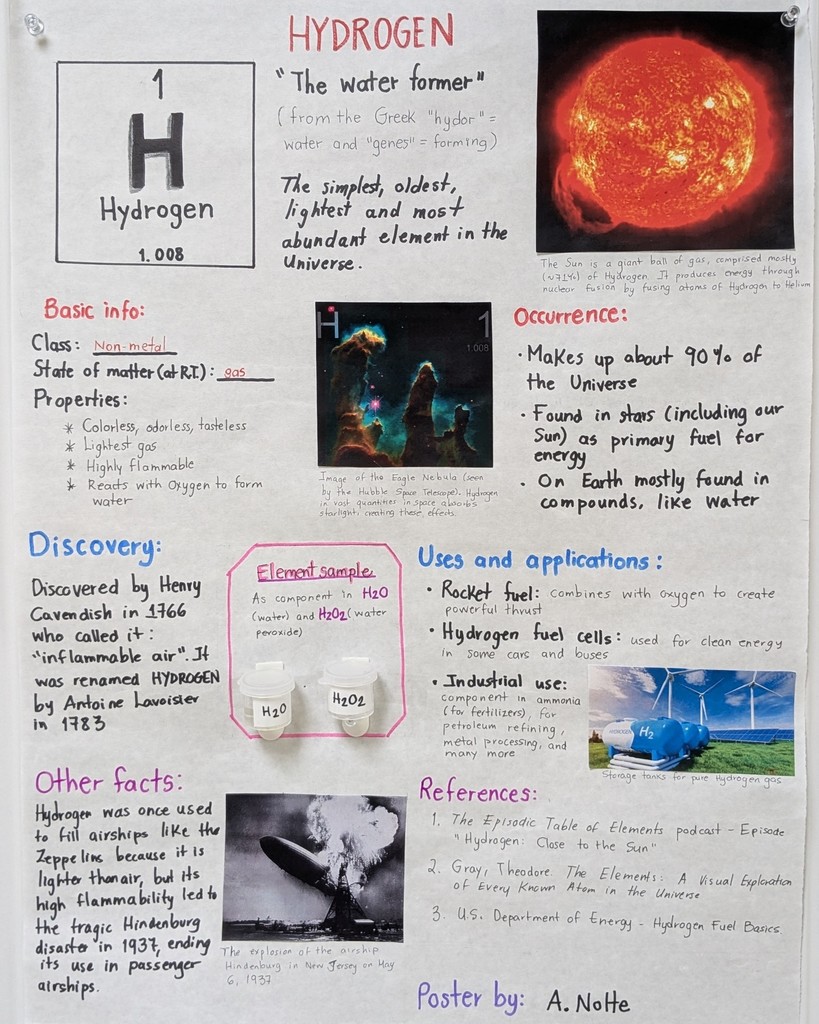 HYDROGEN
1
H
Hydrogen
1.008
"The water former"
(from the Greek "hydor" =
water and "genes" = forming)
The simplest, oldest,
lightest and most
abundant element in the
Universe.
The Sun is a giant ball of gas, comprised mostly
(~71%) of Hydrogen. It produces energy through
nuclear fusion by fusing atoms of Hydrogen to Helium
Basic info:
Class: Non-metal
State of matter (at R.T.): gas
Properties:
* Colorless, odorless, tasteless
* Lightest gas
* Highly flammable
* Reacts with Oxygen to form
water
H
1
1.008
Image of the Eagle Nebula (seen
by the Hubble Space Telescope). Hydrogen
in vast quantities in space absorbs
starlight, creating these effects.
Occurrence:
· Makes up about 90% of
the Universe
· Found in stars (including our
Sun) as primary fuel for
energy
· On Earth mostly found in
compounds, like water
Discovery:
Discovered by Henry
Cavendish in 1766
who called it:
"inflammable air". It
was renamed HYDROGEN
by Antoine Lavoisier
in 1783
Element sample
As component in H2O
(water) and H2O2 (water
peroxide)
H2O
H2O2
Uses and applications:
• Rocket fuel: combines with oxygen to create
powerful thrust
• Hydrogen fuel cells: used for clean energy
in some cars and buses
• Industrial use:
component in ammonia
(for fertilizers), for
petroleum refining,
metal processing, and
many more
HYDROGEN
H2
Storage tanks for pure Hydrogen gas
Other facts:
Hydrogen was once used
to fill airships like the
Zeppelins because it is
lighter than air, but its
high flammability led to
the tragic Hindenburg
disaster in 1937, ending
its use in passenger
airships.
The explosion of the airship
Hindenburg in New Jersey on May
6, 1937
References:
1. The Episodic Table of Elements podcast - Episode
"Hydrogen: Close to the Sun"
2. Gray, Theodore. The Elements: A Visual Exploration
of Every Known Atom in the Universe
3. U.S. Department of Energy - Hydrogen Fuel Basics.
Poster by: A. Nolte